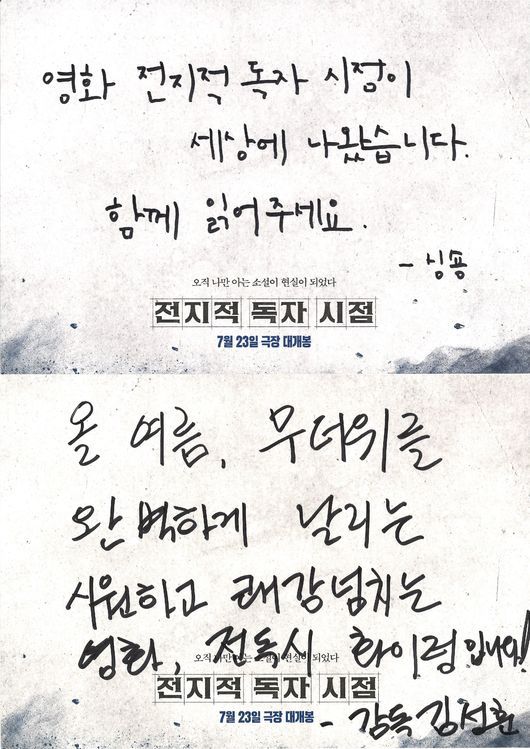 영화 전지적 독자 시점이
세상에 나왔습니다.
함께 읽어주세요.
- 싱숑
오직 나만 아는 소설이 현실이 되었다
전지적 독자 시점
7월 23일 극장 대개봉
올 여름, 무더위를
완벽하게 날리는
시원하고 쾌감넘치는
영화, 전독시 화이링입니다!
오직 나만 아는 소설이 현실이 되었다
전지적 독자 시점
7월 23일 극장 대개봉
- 감독 김선훈